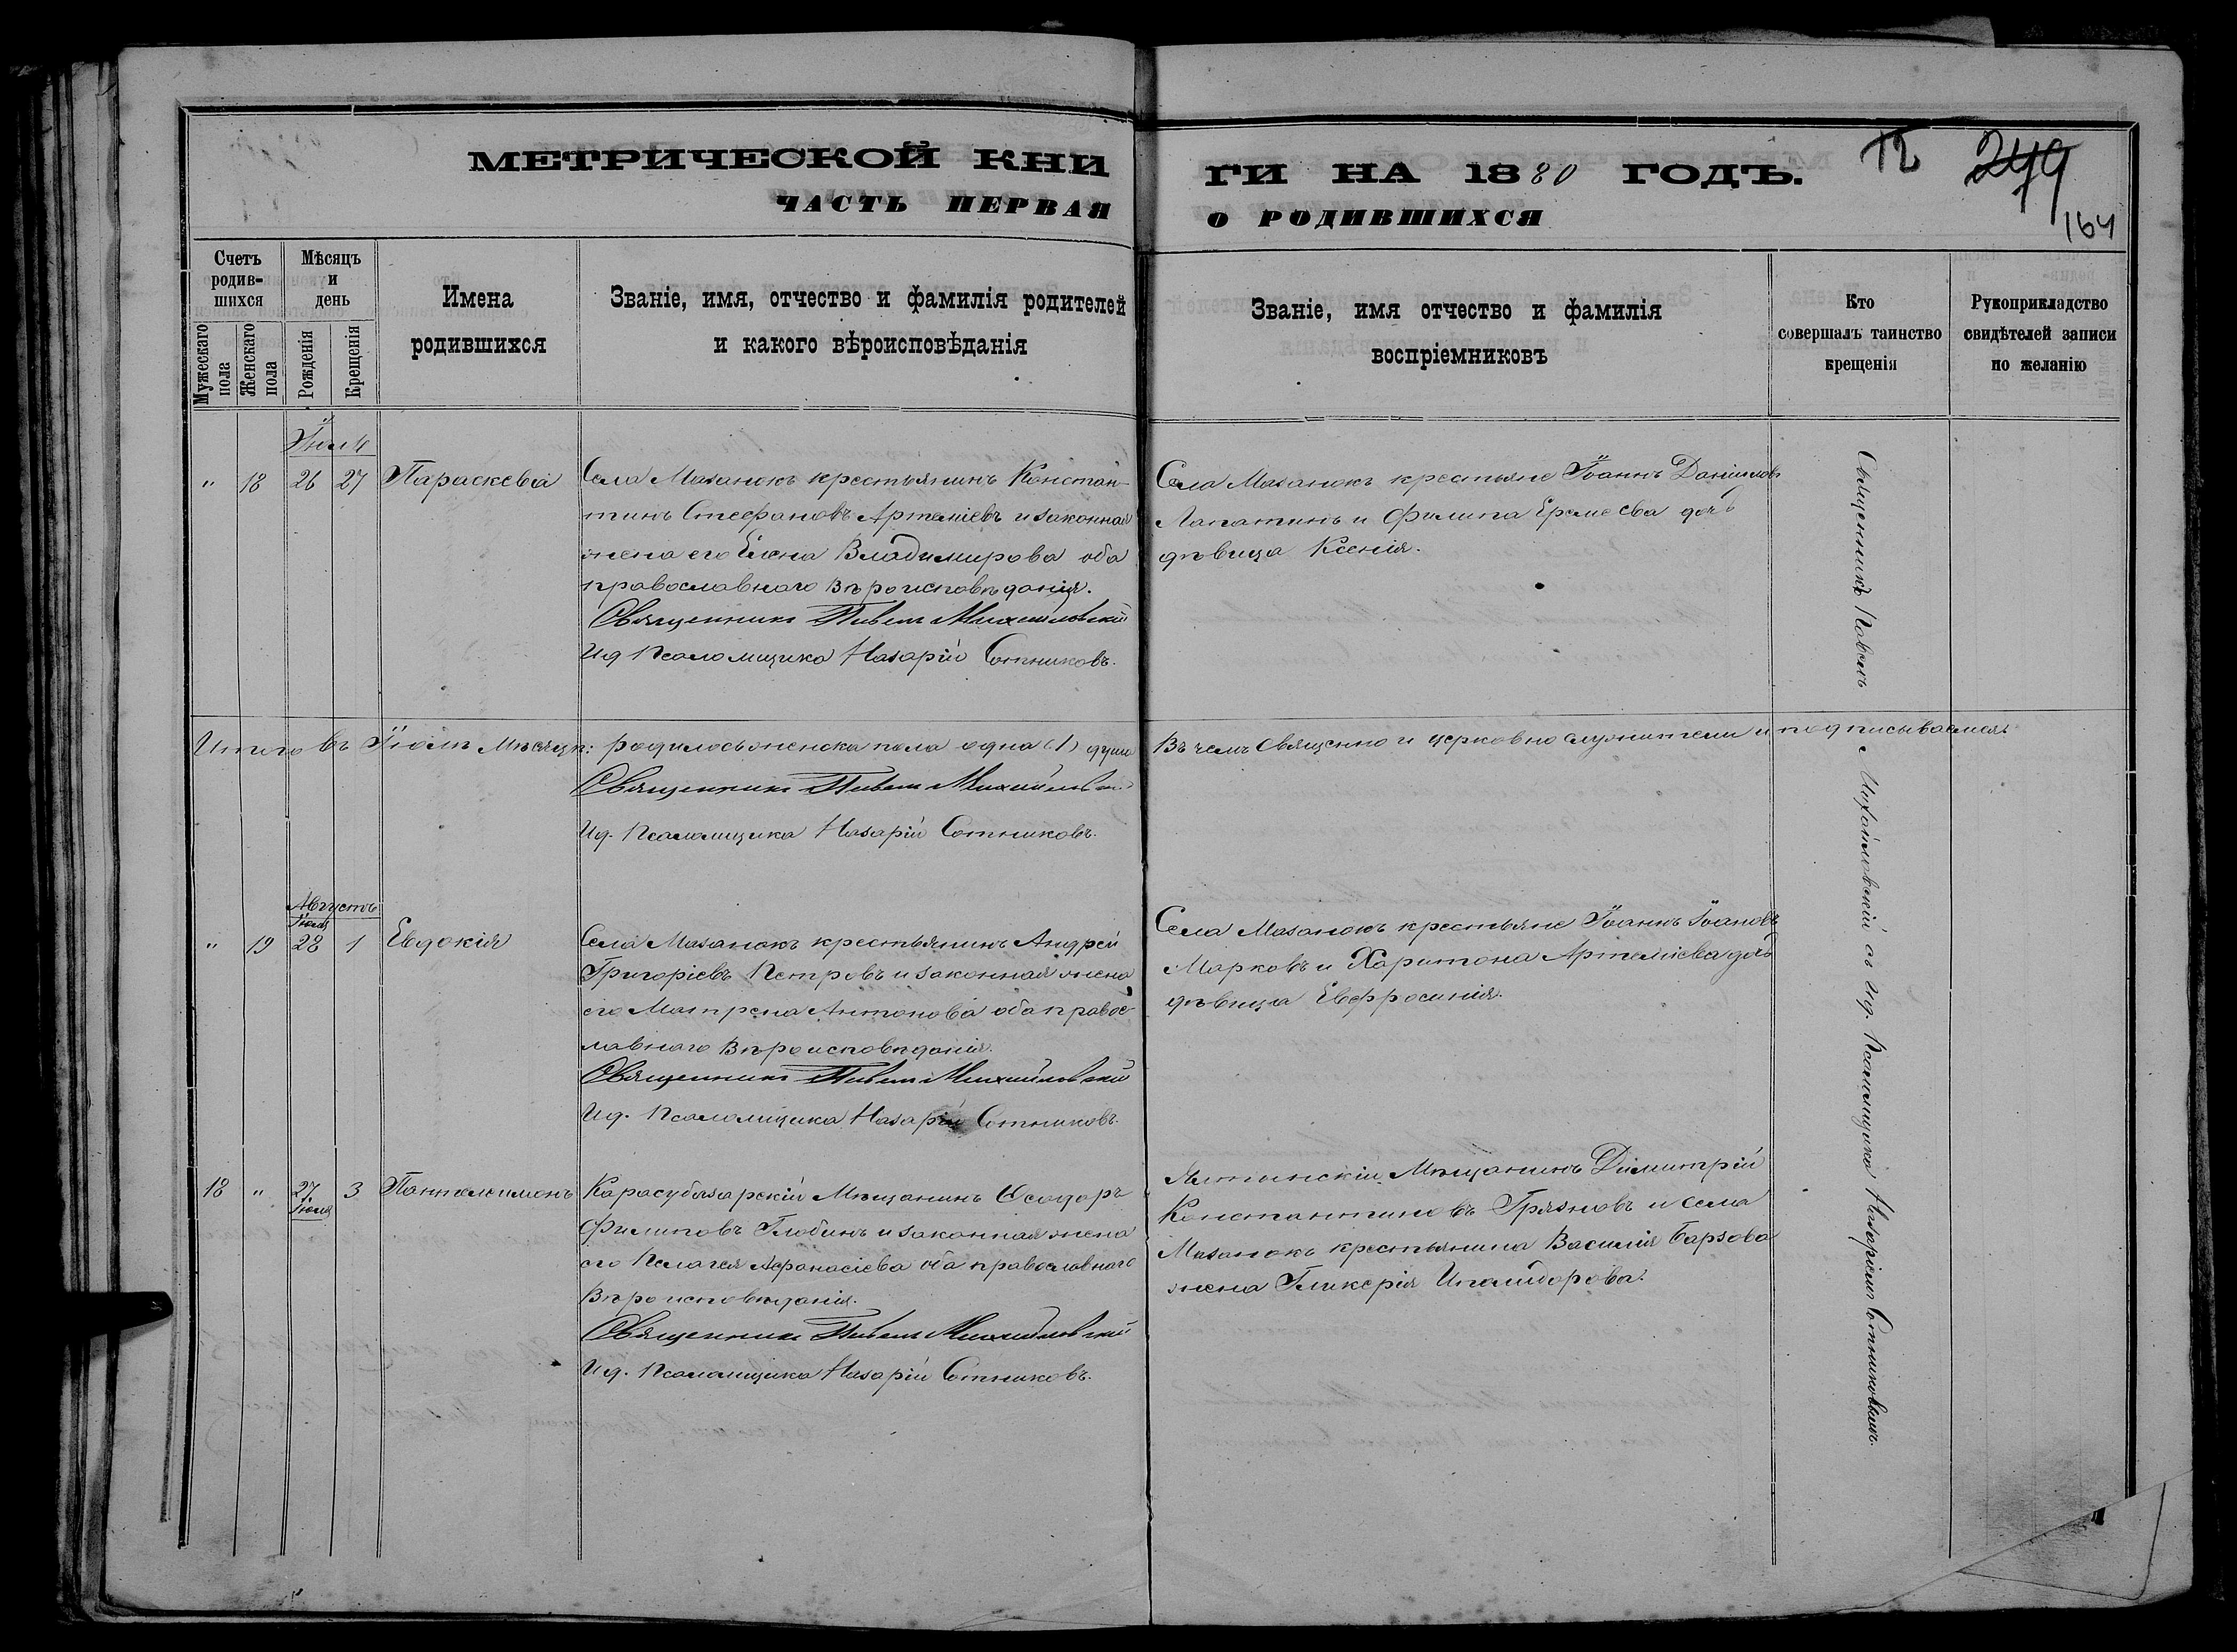 МЕТРИЧЕСКОЙ КНИ
ЧАСТЬ ПЕРВАЯ
ГИ НА 1880 ГОДЪ.
О РОДИВШИХСЯ
12
279
164
Счетъ
родив-
шихся
Мужескаго
пола
Женскаго
пола
Мѣсяцъ
и
день
Рожденія
Крещенія
Имена
родившихся
Званіе, имя, отчество и фамилія родителей
и какого вѣроисповѣданія
Званіе, имя отчество и фамилія
воспріемниковъ
Кто
совершалъ таинство
крещенія
Рукоприкладство
свидѣтелей записи
по желанію
Іюль
" 18 26 27 Параскева
Села Мазанокъ крестьянинъ Констан-
тинъ Стефановъ Артеміевъ и законная
жена его Елена Владимирова оба
православнаго вѣроисповѣданія.
Священникъ Павелъ Михайловскій
Ид Псаломщика Назарій Сотниковъ.
Села Мазанокъ крестьяне Іоаннъ Даніиловъ
Лапатинъ и Филипа Еремеева дочь
дѣвица Ксенія.
Итого въ Іюлѣ мѣсяцѣ: родилось женска пола одна (1) душа
Въ чемъ священно и церковно служители и подписываемся:
Священникъ Павелъ Михайловскій
Ид. Псаломщика Назарій Сотниковъ.
Августъ
Іюля
" 19 28 1 Евдокія
Села Мазанокъ крестьянинъ Андрей
Григоріевъ Петровъ и законная жена
его Матрена Антонова оба правос-
лавнаго вѣроисповѣданія.
Священникъ Павелъ Михайловскій
Ид. Псаломщика Назарій Сотниковъ.
Села Мазанокъ крестьяне Іоаннъ Іоановъ
Марковъ и Харитона Артеміева дочь
дѣвица Евфросинія.
18 " 27 3 Пантелеимонъ
Іюля
Карасубазарскій Мѣщанинъ Ѳеодоръ
Филиповъ Глобинъ и законная жена
его Пелагея Афанасіева оба православнаго
вѣроисповѣданія.
Священникъ Павелъ Михайловскій
Ид. Псаломщика Назарій Сотниковъ.
Ялтынскій Мѣщанинъ Димитрій
Константиновъ Грязновъ и села
Мазанокъ крестьянина Василія Барзова
жена Гликерія
Священникъ Павелъ Михайловскій съ ид. Псаломщика Назаріемъ Сотниковымъ.